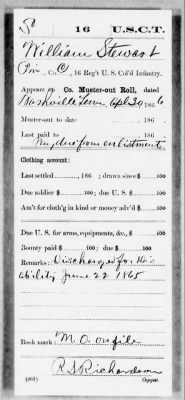 S 16 U.S.C.T.
William Stewart
Pvt., Co. C, 16 Reg't U. S. Col'd Infantry.
Appears on Co. Muster-out Roll, dated
Nashville Tenn Apl 30, 1866
Muster-out to date , 186 .
Last paid to
"Pay due from enlistment"
Clothing account:
Last settled , 186 ; drawn since $ 100
Due soldier $ 100; due U. S. $ 100
Am't for cloth'g in kind or money adv'd $ 100
Due U. S. for arms, equipments, &c., $ 100
Bounty paid $ 100; due $ 100
Remarks: Discharged for Dis
ability June 22 1865
Book mark: M.O. on file
R S Richardson
(861) Copyist.